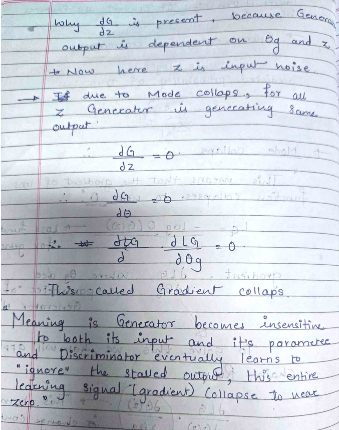 • Why dG/dz is present, because Generator
output is dependent on θg and z
+ Now here z is input noise
→ If due to Mode collaps, for all
z Generator is generating same
output
∴ dG/dz = 0
dG/dθ = 0
∴ dLG/dθg = 0
This called Gradient collaps.
Meaning is Generator becomes insensitive
to both its input and it's parameter
and Discriminator eventually learns to
"ignore" the stalled output, this entire
learning signal (gradient) collapse to near
zero."